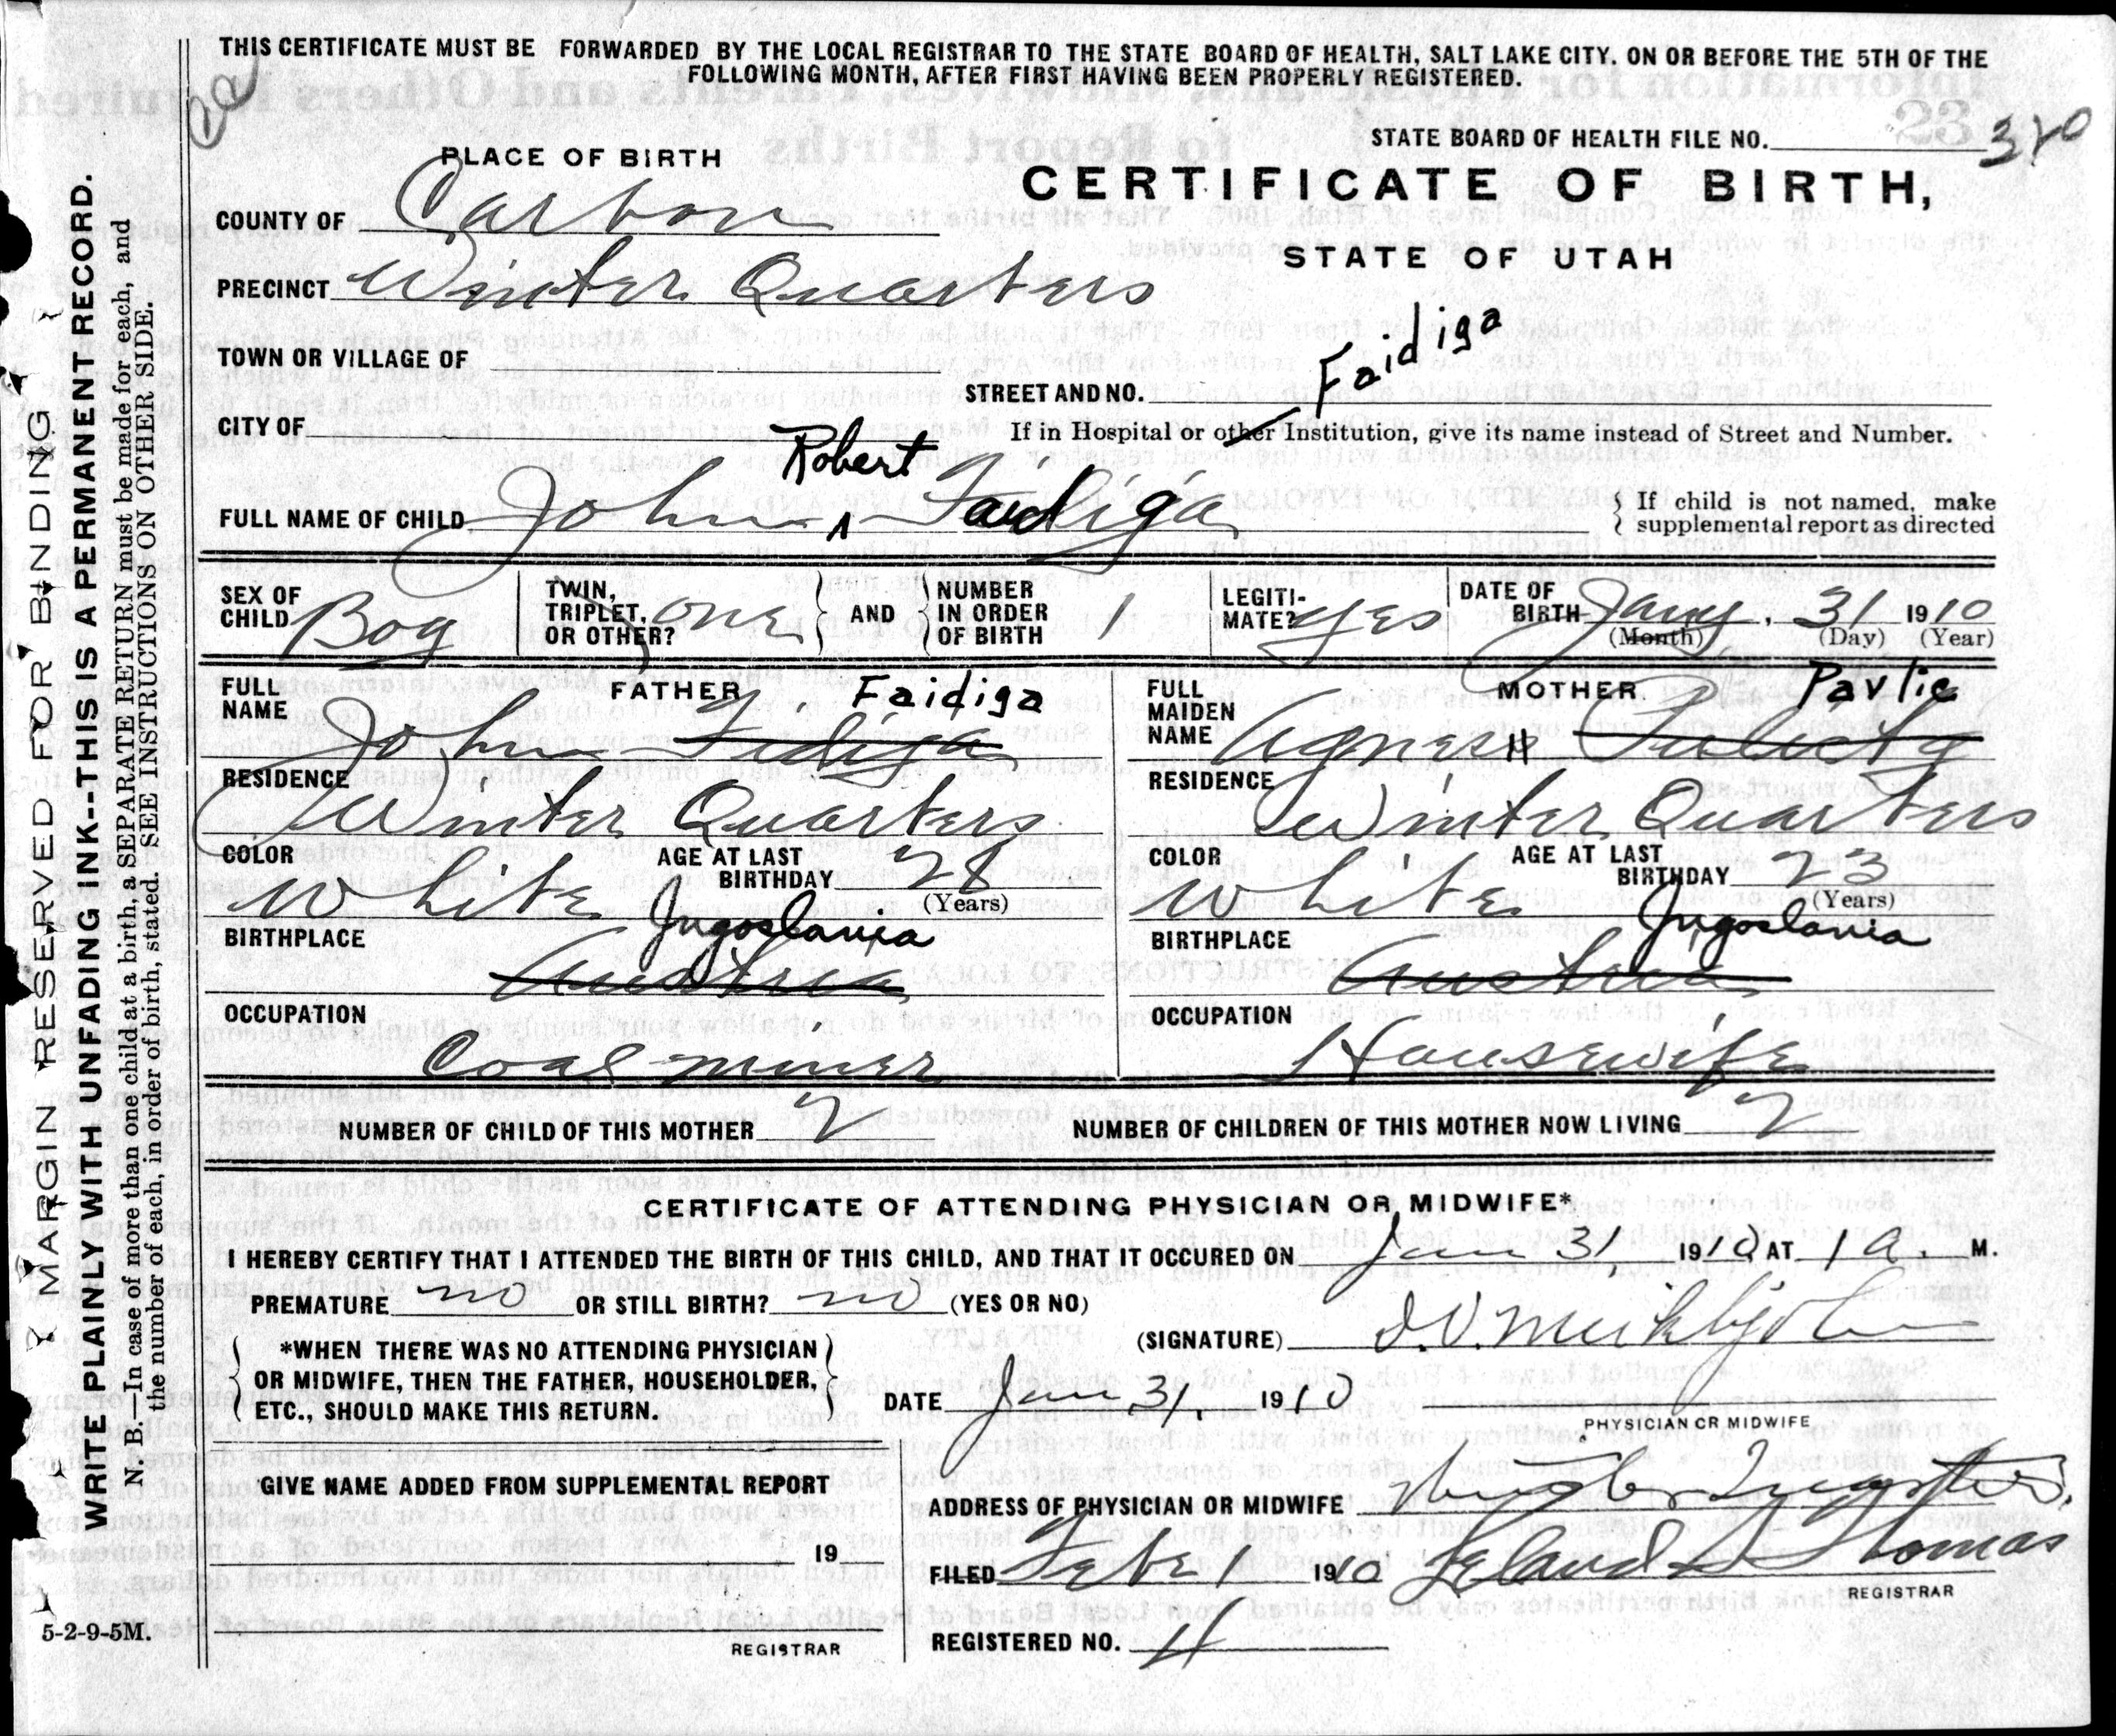 THIS CERTIFICATE MUST BE FORWARDED BY THE LOCAL REGISTRAR TO THE STATE BOARD OF HEALTH, SALT LAKE CITY. ON OR BEFORE THE 5TH OF THE
FOLLOWING MONTH, AFTER FIRST HAVING BEEN PROPERLY REGISTERED.
STATE BOARD OF HEALTH FILE NO.
PLACE OF BIRTH
CERTIFICATE OF BIRTH,
COUNTY OF Carbon
STATE OF UTAH
PRECINCT Winter Quarters
TOWN OR VILLAGE OF
Faidiga
STREET AND NO.
CITY OF
If in Hospital or other Institution, give its name instead of Street and Number.
Robert
FULL NAME OF CHILD John ʌ Faidiga
If child is not named, make
supplemental report as directed
SEX OF CHILD Boy
TWIN, TRIPLET, OR OTHER? one AND NUMBER IN ORDER OF BIRTH 1
LEGITIMATE? yes
DATE OF BIRTH Jany. 31 1910
(Month) (Day) (Year)
FULL NAME FATHER Faidiga
John Fidiga
RESIDENCE
Winter Quarters
COLOR White
AGE AT LAST BIRTHDAY 28
(Years)
Jugoslavia
BIRTHPLACE
Austria
OCCUPATION
Coal miner
FULL MAIDEN NAME MOTHER Pavlic
Agnes H
RESIDENCE
Winter Quarters
COLOR White
AGE AT LAST BIRTHDAY 23
(Years)
Jugoslavia
BIRTHPLACE
Austria
OCCUPATION
Housewife
NUMBER OF CHILD OF THIS MOTHER 2 NUMBER OF CHILDREN OF THIS MOTHER NOW LIVING 2
CERTIFICATE OF ATTENDING PHYSICIAN OR MIDWIFE*
I HEREBY CERTIFY THAT I ATTENDED THE BIRTH OF THIS CHILD, AND THAT IT OCCURED ON Jan 31, 1910 AT 1 a. M.
PREMATURE no OR STILL BIRTH? no (YES OR NO)
*WHEN THERE WAS NO ATTENDING PHYSICIAN
OR MIDWIFE, THEN THE FATHER, HOUSEHOLDER,
ETC., SHOULD MAKE THIS RETURN.
(SIGNATURE)
DATE Jan 31, 1910
PHYSICIAN OR MIDWIFE
GIVE NAME ADDED FROM SUPPLEMENTAL REPORT
19
REGISTRAR
ADDRESS OF PHYSICIAN OR MIDWIFE Winter Quarters,
FILED Feb 1 1910 Leland Thomas
REGISTRAR
REGISTERED NO. 4
MARGIN RESERVED FOR BINDING
WRITE PLAINLY WITH UNFADING INK--THIS IS A PERMANENT RECORD.
N. B.—In case of more than one child at a birth, a SEPARATE RETURN must be made for each, and
the number of each, in order of birth, stated. SEE INSTRUCTIONS ON OTHER SIDE.
5-2-9-5M.